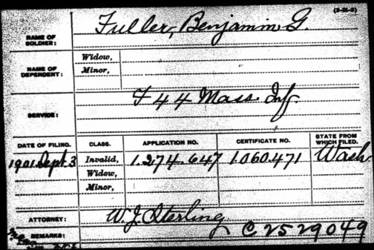 (3-21-2)
NAME OF SOLDIER: Fuller, Benjamin G.
NAME OF DEPENDENT: Widow,
Minor,
SERVICE: F 44 Mass. Inf.
DATE OF FILING. CLASS. APPLICATION NO. CERTIFICATE NO. STATE FROM WHICH FILED.
1901 Sept. 3 Invalid, 1.274.647 1.060.471 Wash.
Widow,
Minor,
ATTORNEY: W. J. Sterling C 2529049
REMARKS: